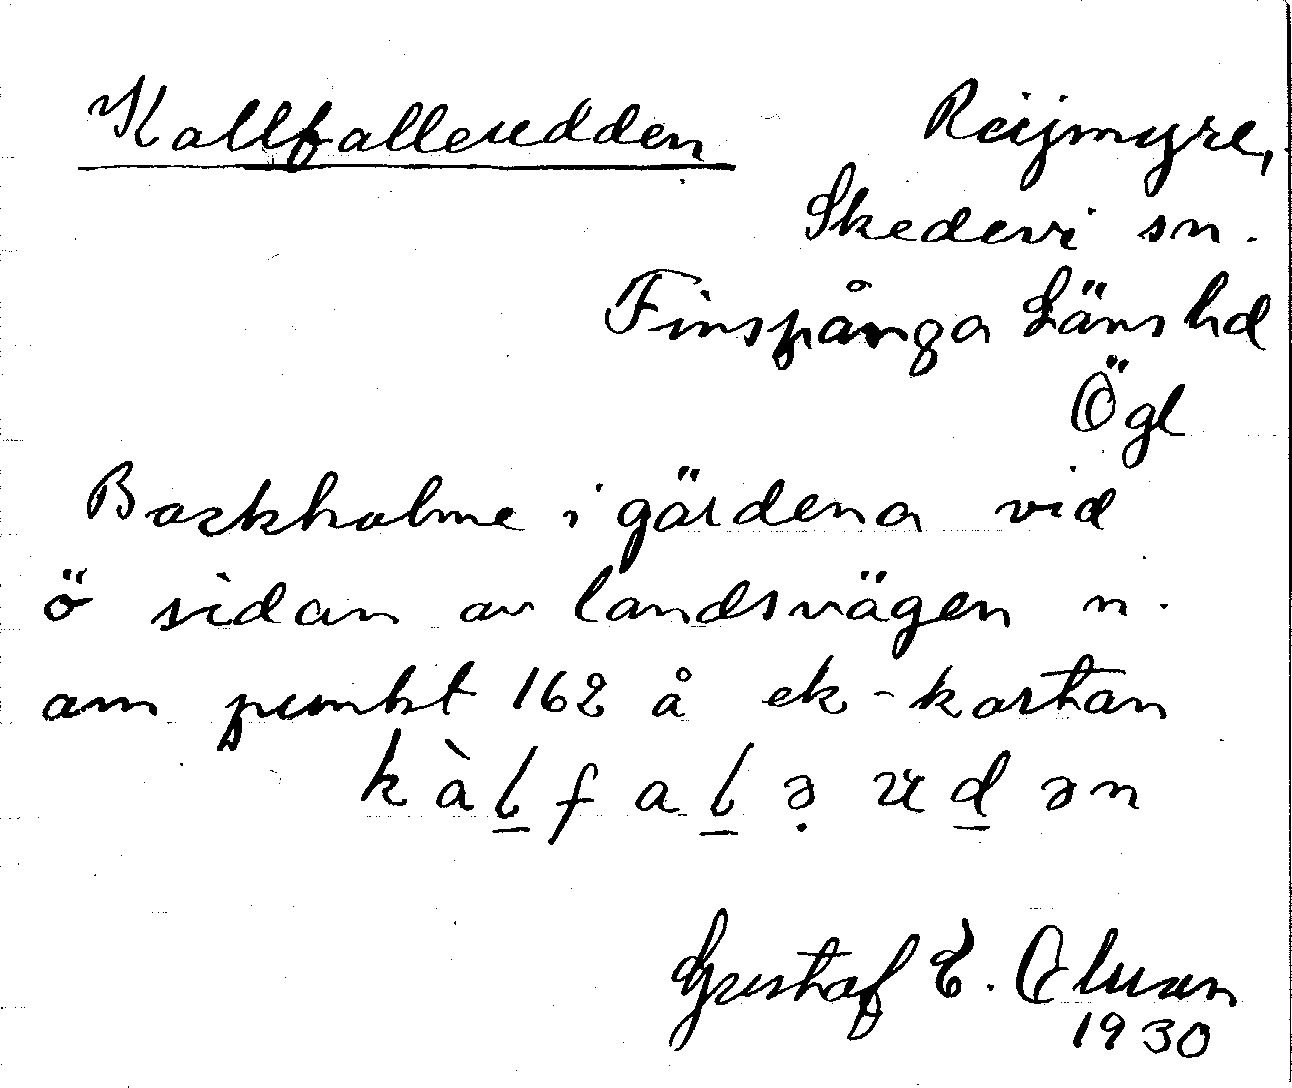 Kallfalleudden
Reijmyre,
Skedevi sn.
Finspånga Läns hd
Ögl
Backholme i gärdena vid
ö sidan av landsvägen n.
om punkt 162 å ek-kartan
kàl̲fal̲ə̣ud̲ən
Gustaf E.
1930